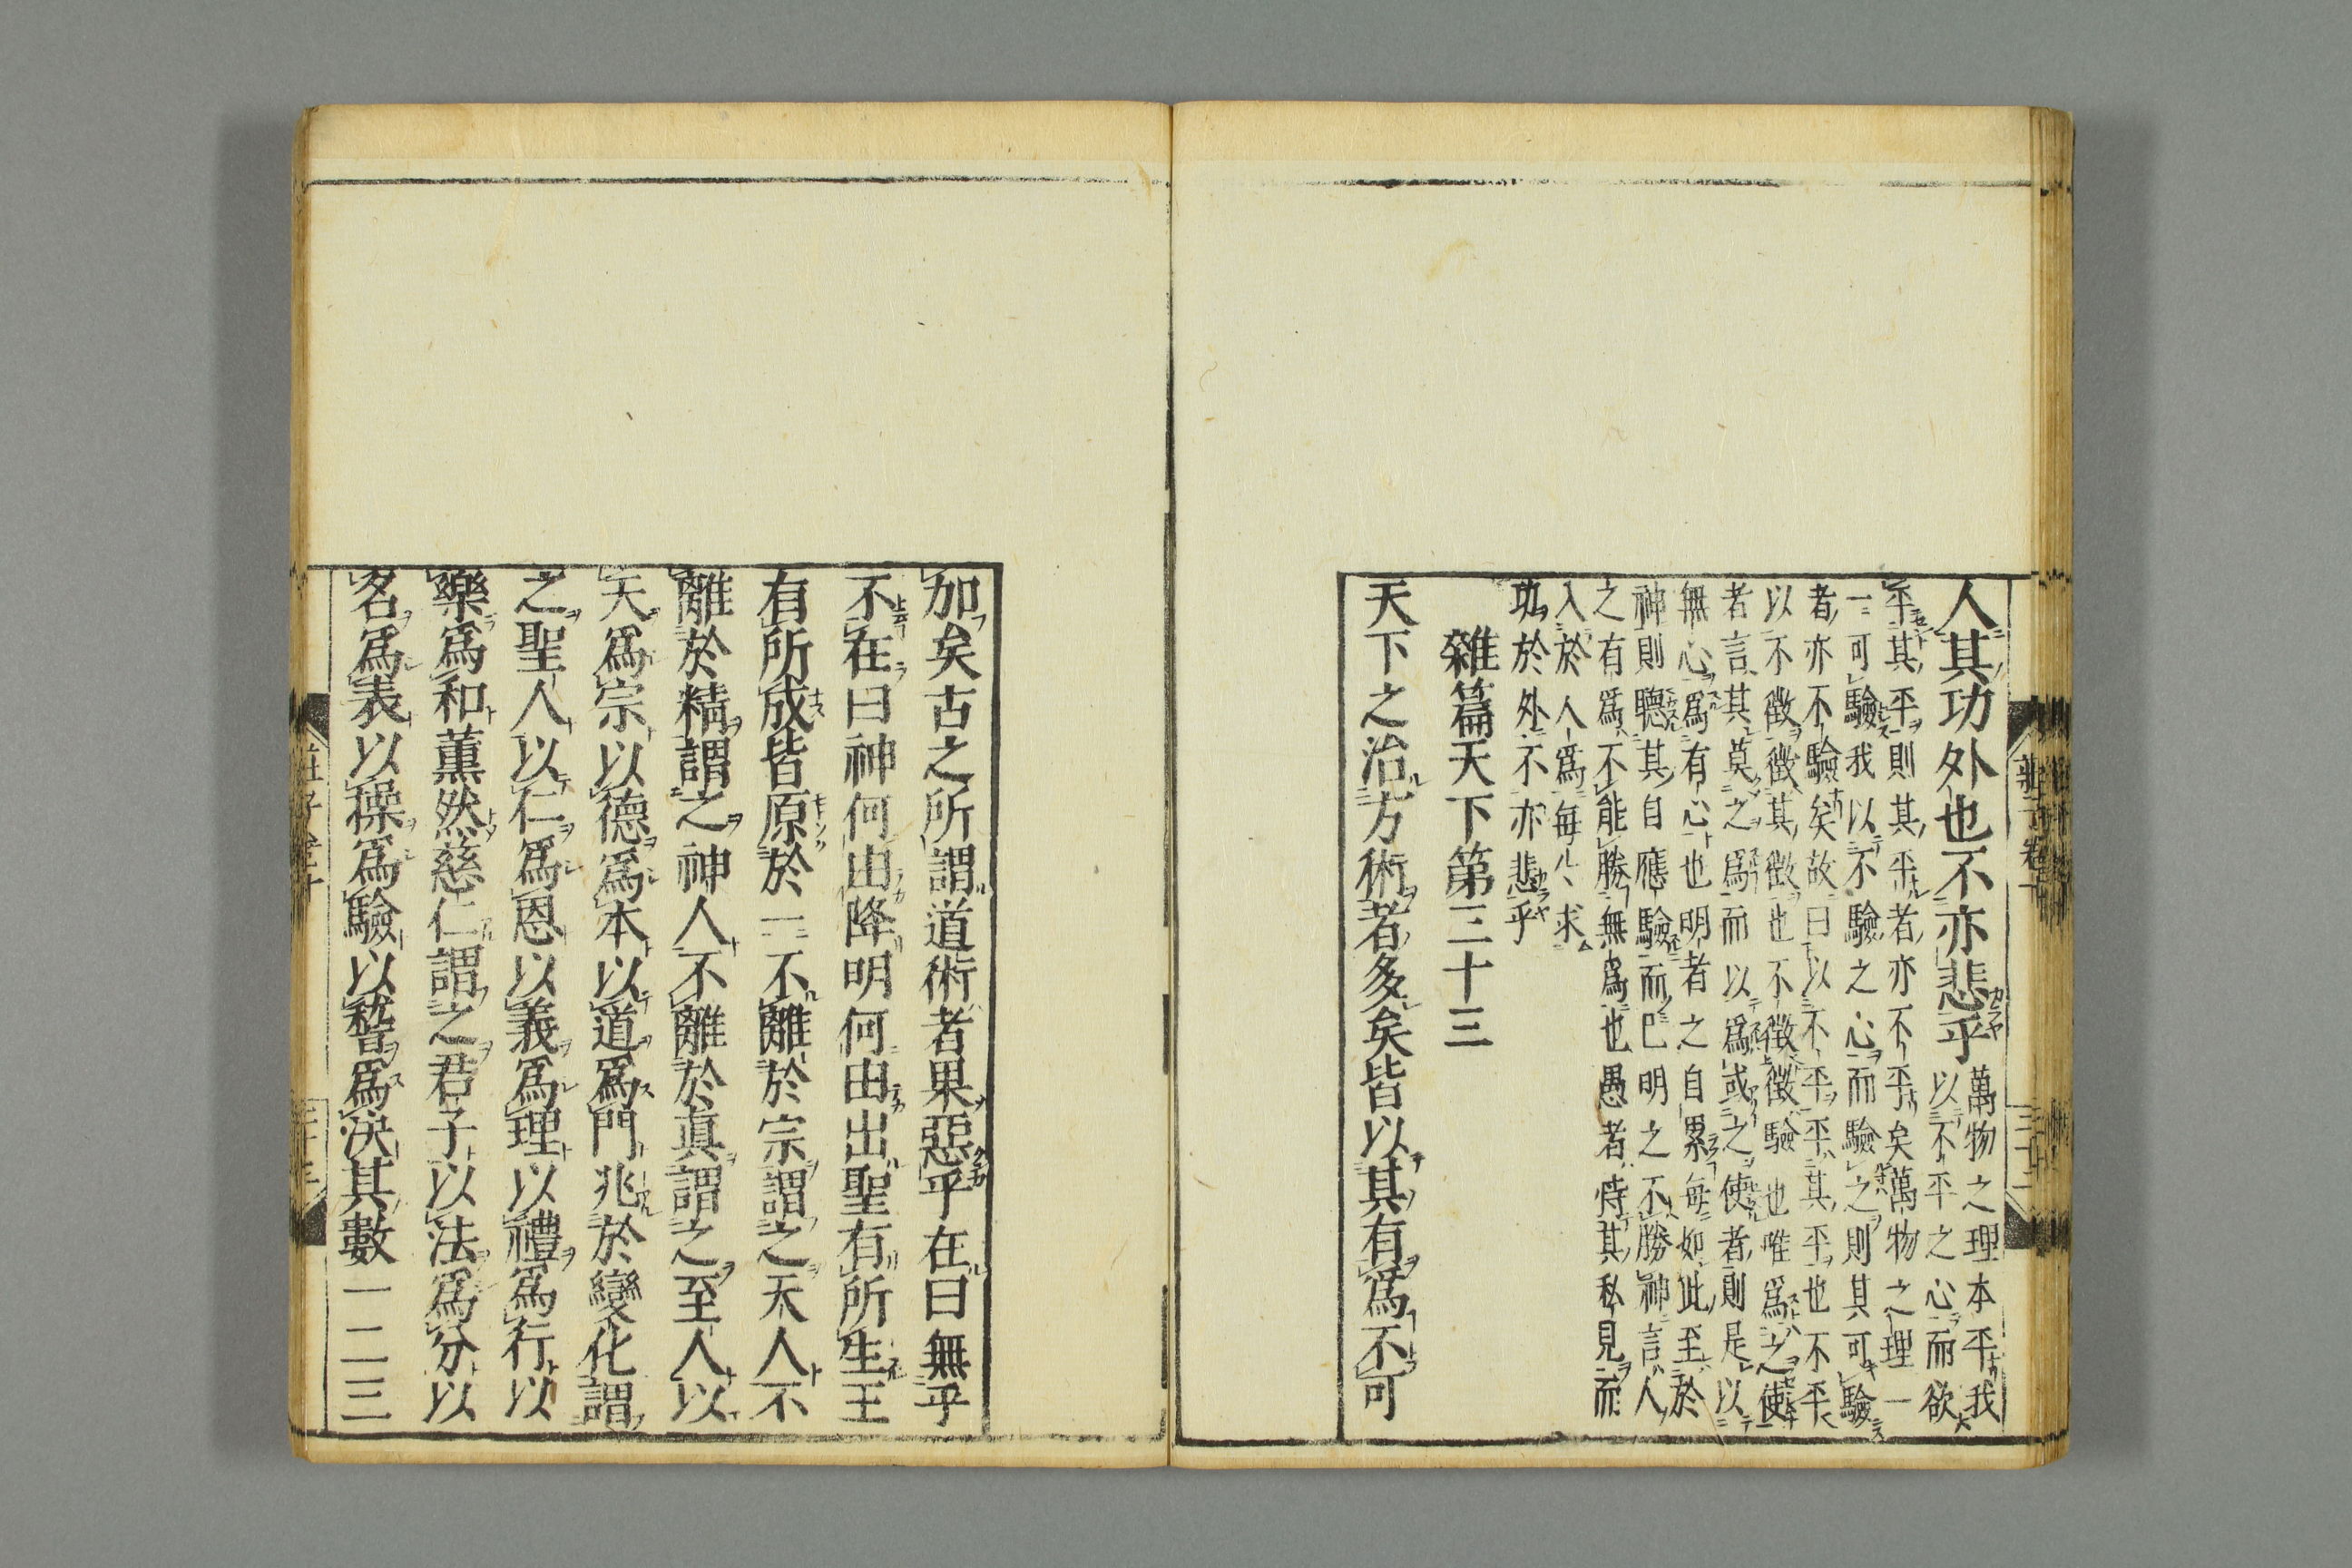 人其功外也不亦悲乎
萬物之理本平我
以不平之心而欲
平其平則其平者亦不平矣萬物之理一
一可驗我以不驗之心而驗之則其可驗
者亦不驗矣故曰以不平平其平也不平
以不徵徵其徵也不徵徵驗也唯爲之使
者言其莫之爲而以爲或之使者則是以
無心爲有心也明者之自累每如此至於
神則聽其自應驗而已明之不勝神言人
之有爲不能勝無爲也愚者恃其私見而
入於人爲每〻求
功於外不亦悲乎
雜篇天下第三十三
天下之治方術者多矣皆以其有爲不可
加矣古之所謂道術者果惡乎在曰無乎
不在曰神何由降明何由出聖有所生王
有所成皆原於一不離於宗謂之天人不
離於精謂之神人不離於眞謂之至人以
天爲宗以德爲本以道爲門兆於變化謂
之聖人以仁爲恩以義爲理以禮爲行以
樂爲和薰然慈仁謂之君子以法爲分以
名爲表以操爲驗以稽爲決其數一二三